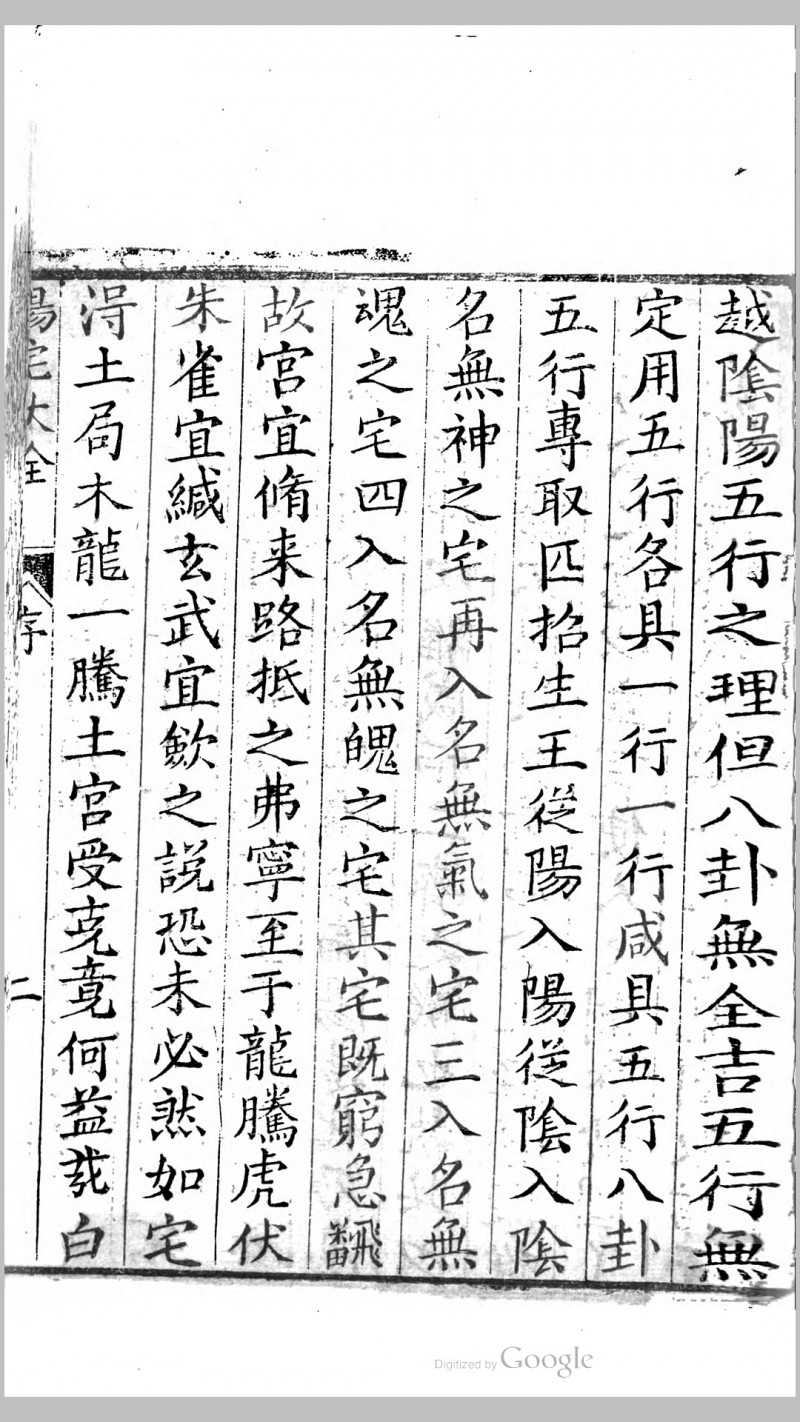 越陰陽五行之理但八卦無全吉五行無
定用五行各具一行一行咸具五行八卦
五行專取匹招生王從陽入陽從陰入陰
名無神之宅再入名無氣之宅三入名無
魂之宅四入名無魄之宅其宅既窮急飜
故宮宜脩来路抵之弗寧至于龍騰虎伏
朱雀宜緘玄武宜歛之説恐未必然如宅
淂土局木龍一騰土宮受克竟何益哉白
陽宅大全
序
二
Digitized by Google